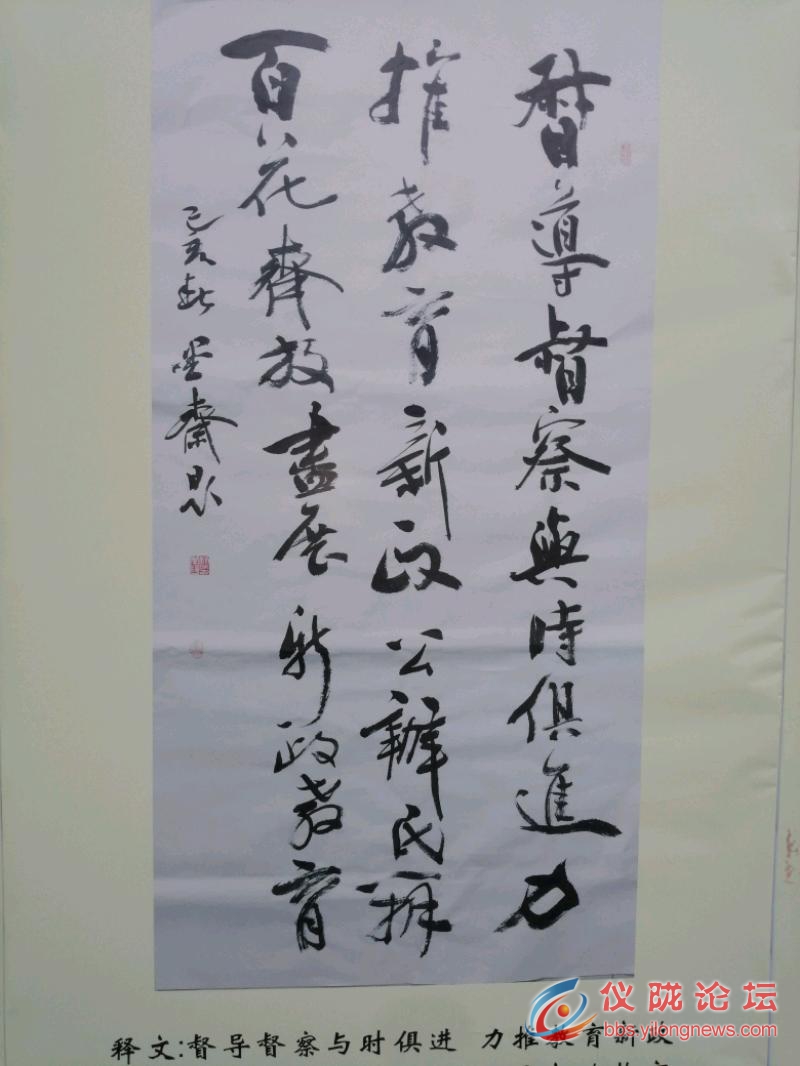 督導督察與時俱進力
推教育新政公辦民辦
百花齊放盡展新政教育
己亥秋墨齋
释文:督导督察与时俱进 力推教育新政
仪陇论坛
bbs.yilongnews.com